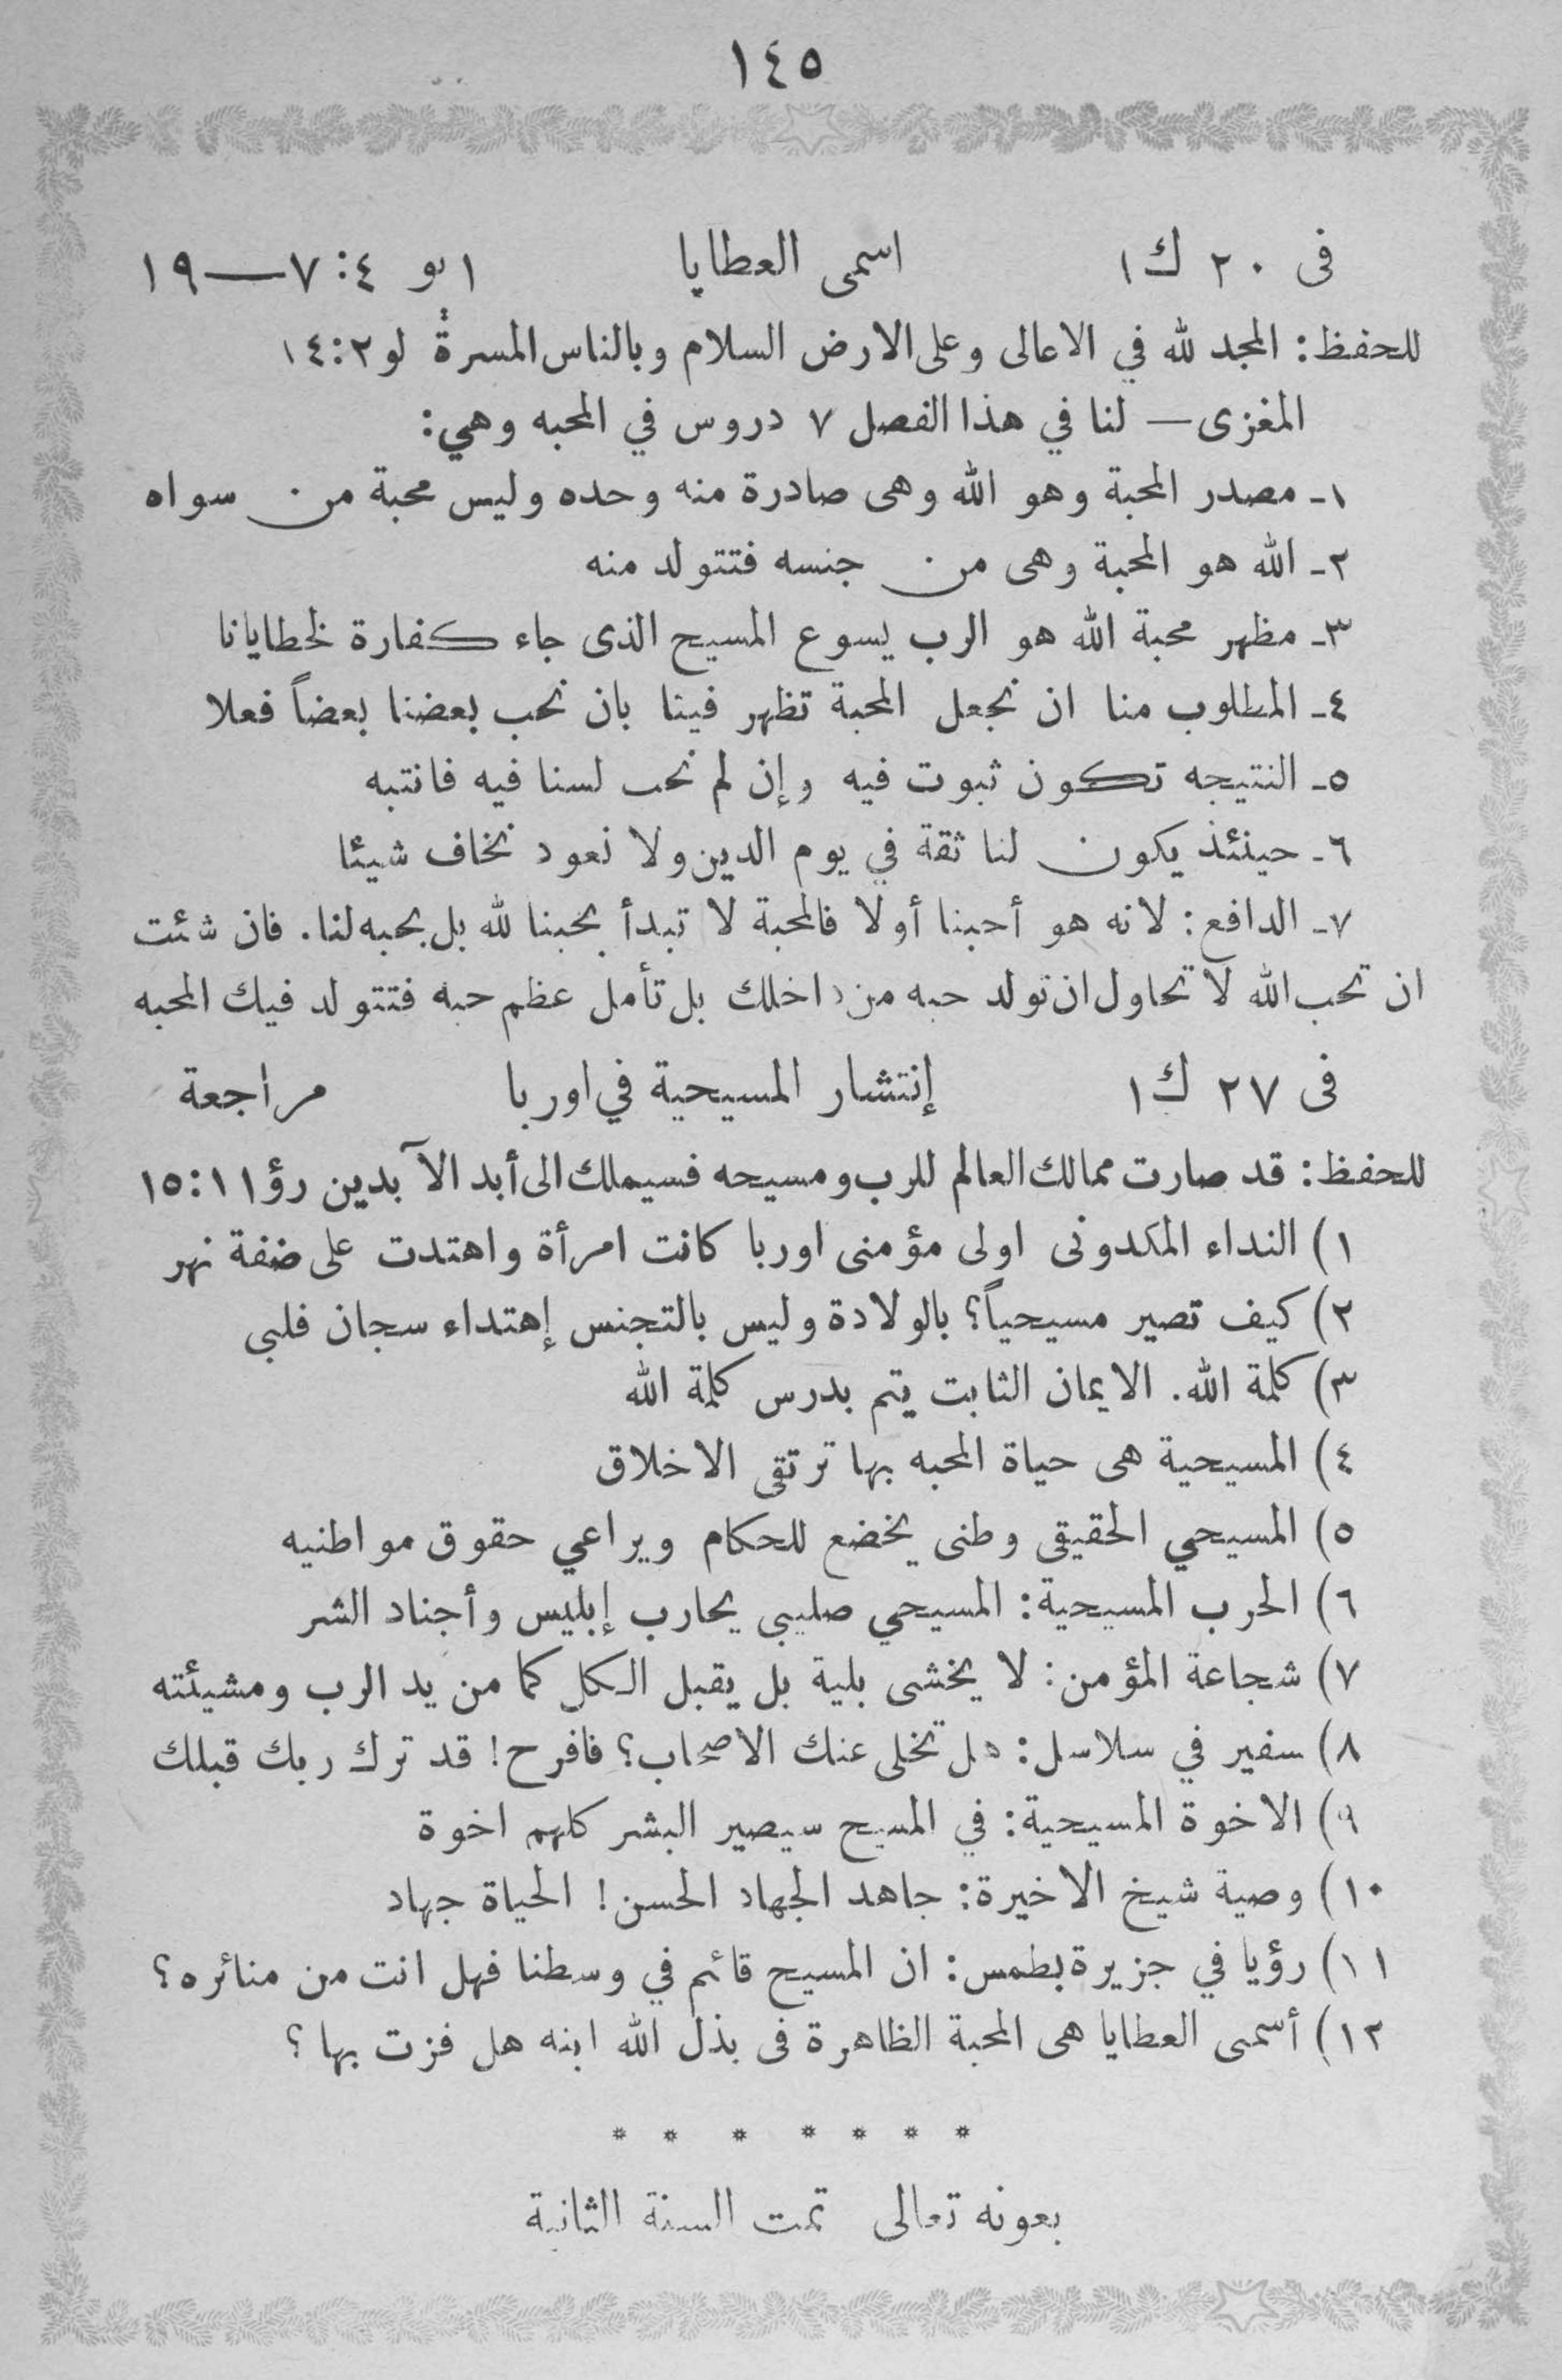 ١٤٥
فى ٢٠ ك١ اسمى العطايا ١ يو ٤: ٧—١٩
للحفظ: المجد لله في الاعالى وعلى الارض السلام وبالناس المسرة لو٢: ١٤
المغزى — لنا في هذا الفصل ٧ دروس في المحبه وهي:
١ـ مصدر المحبة وهو الله وهى صادرة منه وحده وليس محبة من سواه
٢ـ الله هو المحبة وهى من جنسه فتتولد منه
٣ـ مظهر محبة الله هو الرب يسوع المسيح الذى جاء كفارة لخطايانا
٤ـ المطلوب منا ان نجعل المحبة تظهر فينا بان نحب بعضنا بعضاً فعلا
٥ـ النتيجه تكون ثبوت فيه وإن لم نحب لسنا فيه فانتبه
٦ـ حينئذ يكون لنا ثقة في يوم الدين ولا نعود نخاف شيئا
٧ـ الدافع: لانه هو أحبنا أولا فالمحبة لا تبدأ بحبنا لله بل بحبه لنا. فان شئت
ان تحب الله لا تحاول ان تولد حبه من داخلك بل تأمل عظم حبه فتتولد فيك المحبه
فى ٢٧ ك١ إنتشار المسيحية في اوربا مراجعة
للحفظ: قد صارت ممالك العالم للرب ومسيحه فسيملك الى أبد الآبدين رؤ١١: ١٥
١) النداء المكدونى اولى مؤمنى اوربا كانت امرأة واهتدت على ضفة نهر
٢) كيف تصير مسيحياً؟ بالولادة وليس بالتجنس إهتداء سجان فلبي
٣) كلمة الله. الايمان الثابت يتم بدرس كلمة الله
٤) المسيحية هى حياة المحبه بها ترتقى الاخلاق
٥) المسيحي الحقيقى وطنى يخضع للحكام ويراعي حقوق مواطنيه
٦) الحرب المسيحية: المسيحي صليبى يحارب إبليس وأجناد الشر
٧) شجاعة المؤمن: لا يخشى بلية بل يقبل الكل كما من يد الرب ومشيئته
٨) سفير في سلاسل: هل تخلى عنك الاصحاب؟ فافرح! قد ترك ربك قبلك
٩) الاخوة المسيحية: في المسيح سيصير البشر كلهم اخوة
١٠) وصية شيخ الاخيرة: جاهد الجهاد الحسن! الحياة جهاد
١١) رؤيا في جزيرة بطمس: ان المسيح قائم في وسطنا فهل انت من منائره؟
١٢) أسمى العطايا هى المحبة الظاهرة فى بذل الله ابنه هل فزت بها؟
* * * * * * *
بعونه تعالى تمت السنة الثانية